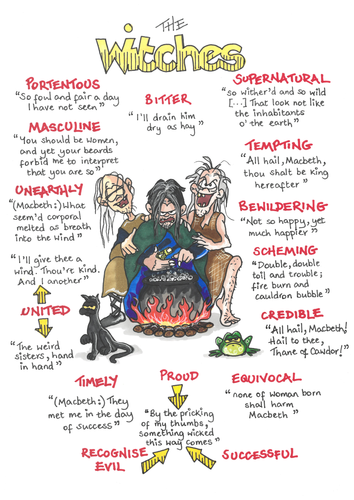 THE
Witches
PORTENTOUS
"So foul and fair a day
I have not seen"
MASCULINE
"You should be women,
and yet your beards
forbid me to interpret
that you are so"
UNEARTHLY
"(Macbeth:) What
seem'd corporal
melted as breath
into the wind"
"I'll give thee a
wind. Thou'rt kind.
And I another"
UNITED
"The weird
sisters, hand
in hand"
BITTER
"I'll drain him
dry as hay"
SUPERNATURAL
"so wither'd and so wild
[...] That look not like
the inhabitants
o' the earth"
TEMPTING
"All hail, Macbeth,
thou shalt be king
hereafter"
BEWILDERING
"Not so happy, yet
much happier"
SCHEMING
"Double, double
toil and trouble;
fire burn and
cauldron bubble"
CREDIBLE
"All hail, Macbeth!
Hail to thee,
Thane of Cawdor!"
TIMELY
"(Macbeth:) They
met me in the day
of success"
PROUD
"By the pricking
of my thumbs,
something wicked
this way comes"
EQUIVOCAL
"none of woman born
shall harm
Macbeth"
RECOGNISE
EVIL
SUCCESSFUL